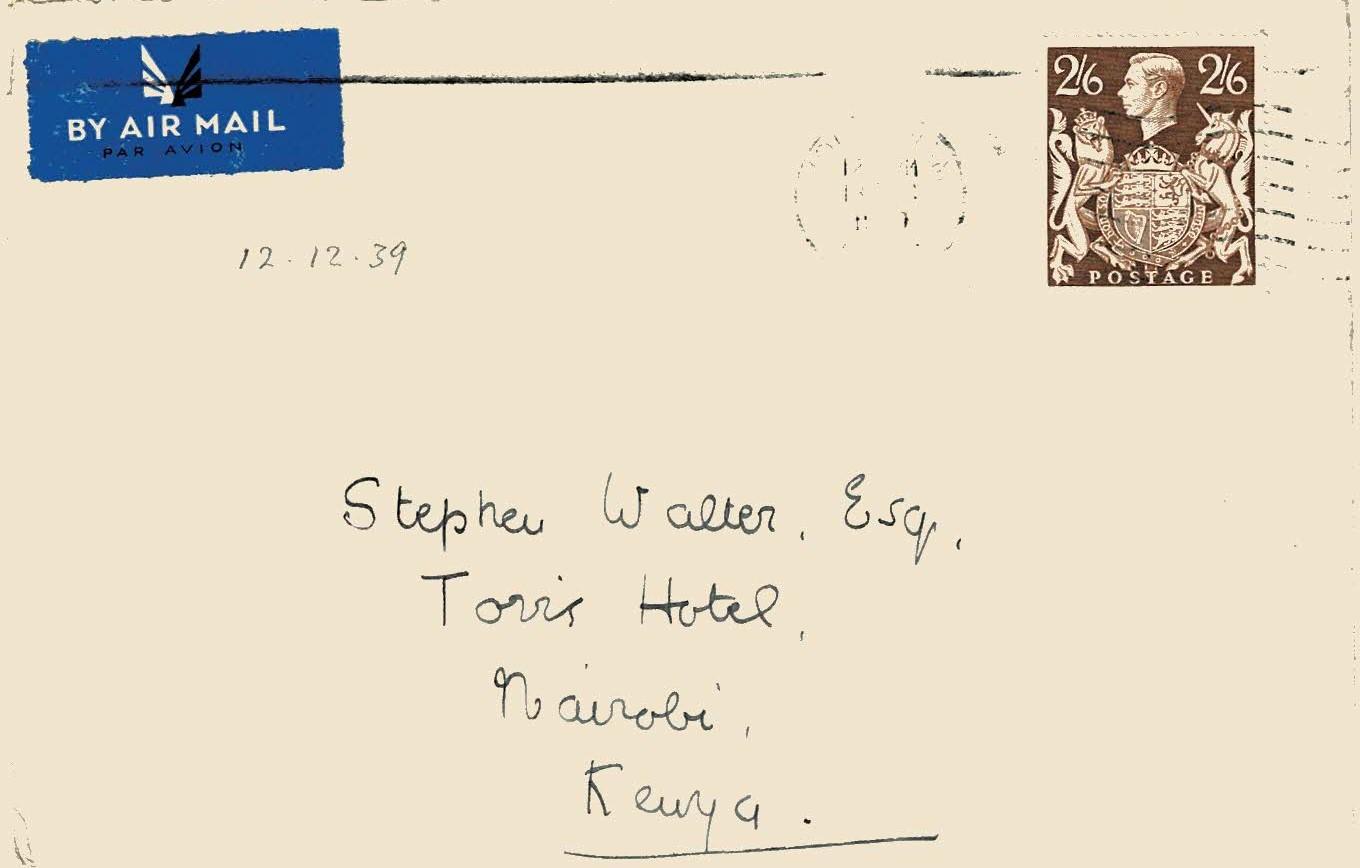 BY AIR MAIL
PAR AVION
2/6 2/6
POSTAGE
12.12.39
Stephen Walter, Esq,
Torr's Hotel,
Nairobi,
Kenya.